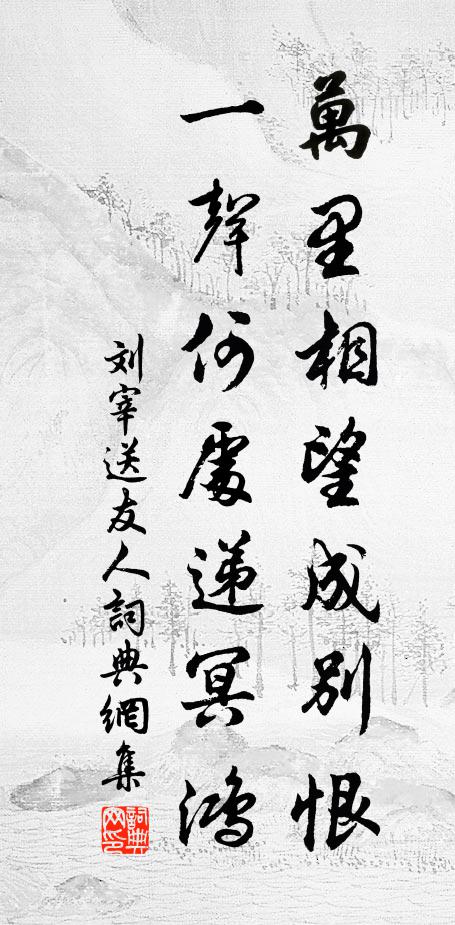 萬里相望成別恨
一聲何處遞冥鴻
刘宰送友人詞典網集
詞典網印